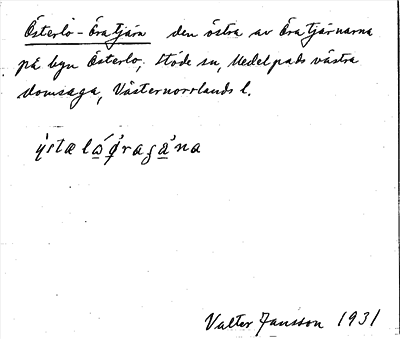 Österlo-Öratjärn den östra av Öratjärnarna
på byn Österlo, Stöde sn, Medelpads västra
domsaga, Västernorrlands l.
Valter Jansson 1931